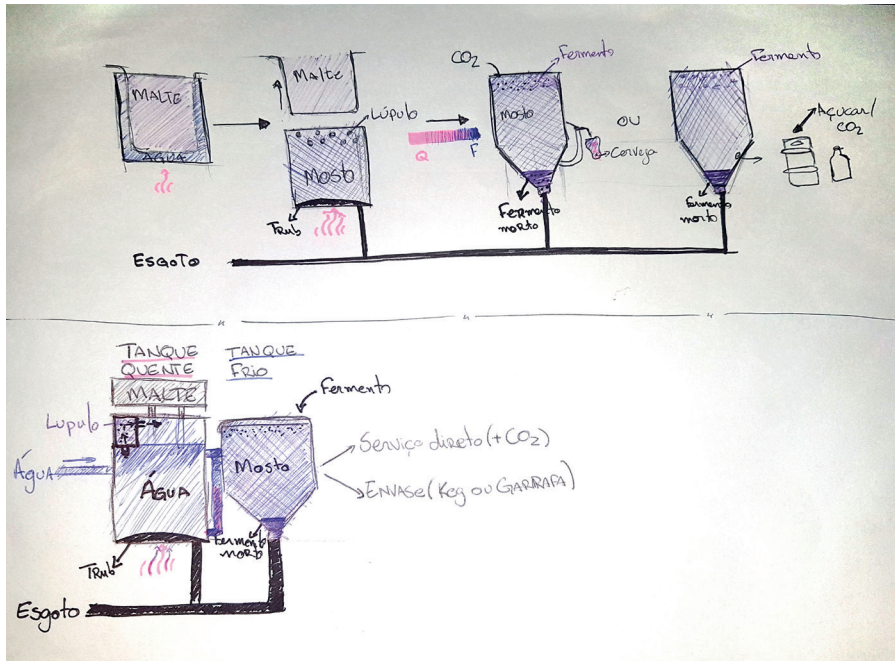 MALTE
ÁGUA
Malte
Lúpulo
Mosto
Trub
Q
F
CO2
Fermento
Mosto
Cerveja
Fermento
morto
OU
Fermento
Açucar/
CO2
Fermento
morto
ESGOTO
TANQUE
QUENTE
TANQUE
FRIO
MALTE
Lupulo
Água
ÁGUA
Trub
Fermento
Mosto
Fermento
morto
Serviço direto (+CO2)
ENVASE (Keg ou GARRAFA)
Esgoto